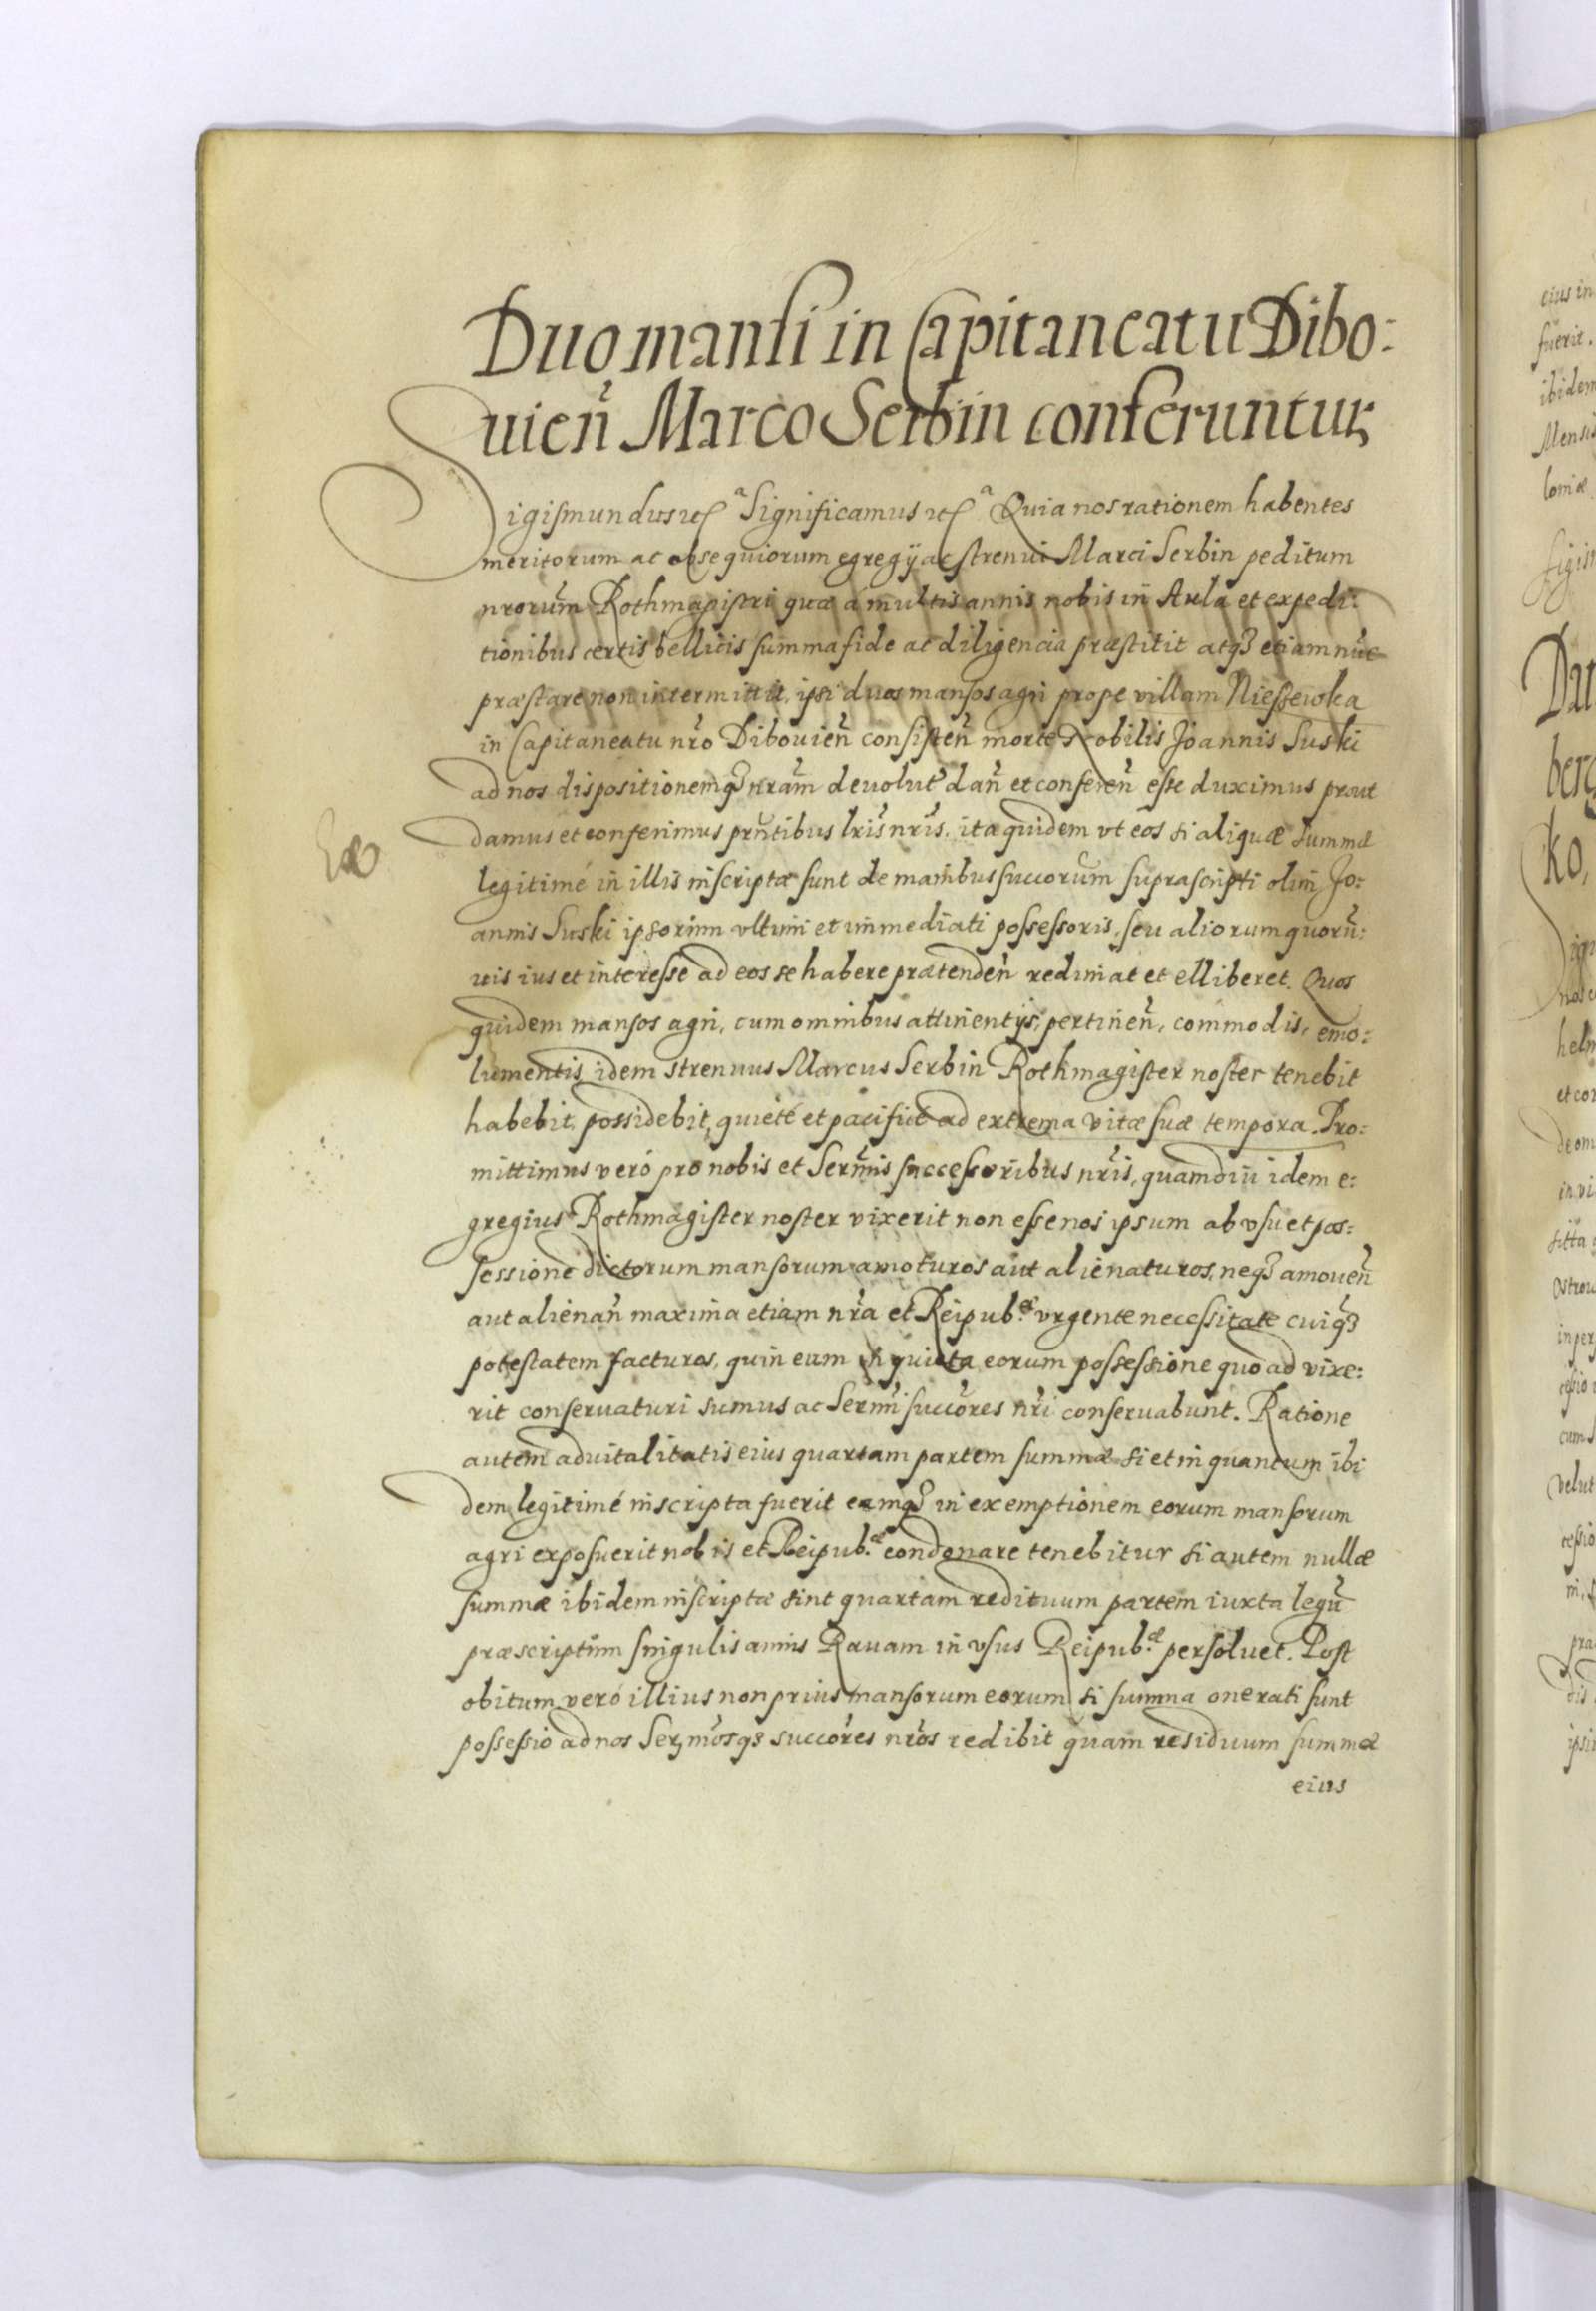 Duo mansi in Capitaneatu Dibo:
uień Marco Serbin conferuntur,
Sigismundus etc.ª Significamus etc.ª Quia nos rationem habentes
meritorum ac obsequiorum egregij ac strenui Marci Serbin peditum
nrorum Rothmagistri quæ á multis annis nobis in Aula et expedi:
tionibus certis bellicis summa fide ac diligencia præstitit atq3 etiamnūc
præstare non intermittit, ipsi duos mansos agri prope villam Niessewka
in Capitaneatu nro Dibouień consisteń morte Nobilis Joannis Suski
ad nos dispositionemq3 nram deuolut dań et confereń esse duximus prout
damus et conferimus prntibus lris nris, ita quidem vt eos si aliquæ summæ
legitimé in illis inscriptæ sunt de manibus succorum suprascripti olim Jo:
annis Suski ipsorum vltimi et immediati possessoris, seu aliorum quorū:
uis ius et interesse ad eos se habere prætendeń redimat et elliberet. Quos
quidem mansos agri, cum omnibus attinentijs, pertineń, commodis, emo:
lumentis idem strenuus Marcus Serbin Rothmagister noster tenebit
habebit, possidebit, quieté et pacificé ad extrema vitæ suæ tempora. Pro:
mittimus veró pro nobis et Sermis successoribus nris, quamdiu idem e:
gregius Rothmagister noster vixerit non esse nos ipsum ab vsu et pos:
sessione dictorum mansorum amoturos aut alienaturos, neq3 amoueń
aut alienań maxima etiam nra et Reipub.æ vrgente necessitate cuiq3
potestatem facturos, quin eum in quieta eorum possessione quo ad vixe:
rit conseruaturi sumus ac Sermi succores nri conseruabunt. Ratione
autem aduitalitatis eius quartam partem summæ si et in quantum ibi
dem legitimé inscripta fuerit eamq3 in exemptionem eorum mansorum
agri exposuerit nobis et Reipub.æ condonare tenebitur si autem nullæ
summæ ibidem inscriptæ sint quartam redituum partem iuxta legū
præscriptum singulis annis Rauam in vsus Reipub.æ persoluet. Post
obitum veró illius non prius mansorum eorum si summa onerati sunt
possessio ad nos Sermosq3 succores nros redibit quam residuum summæ
eius